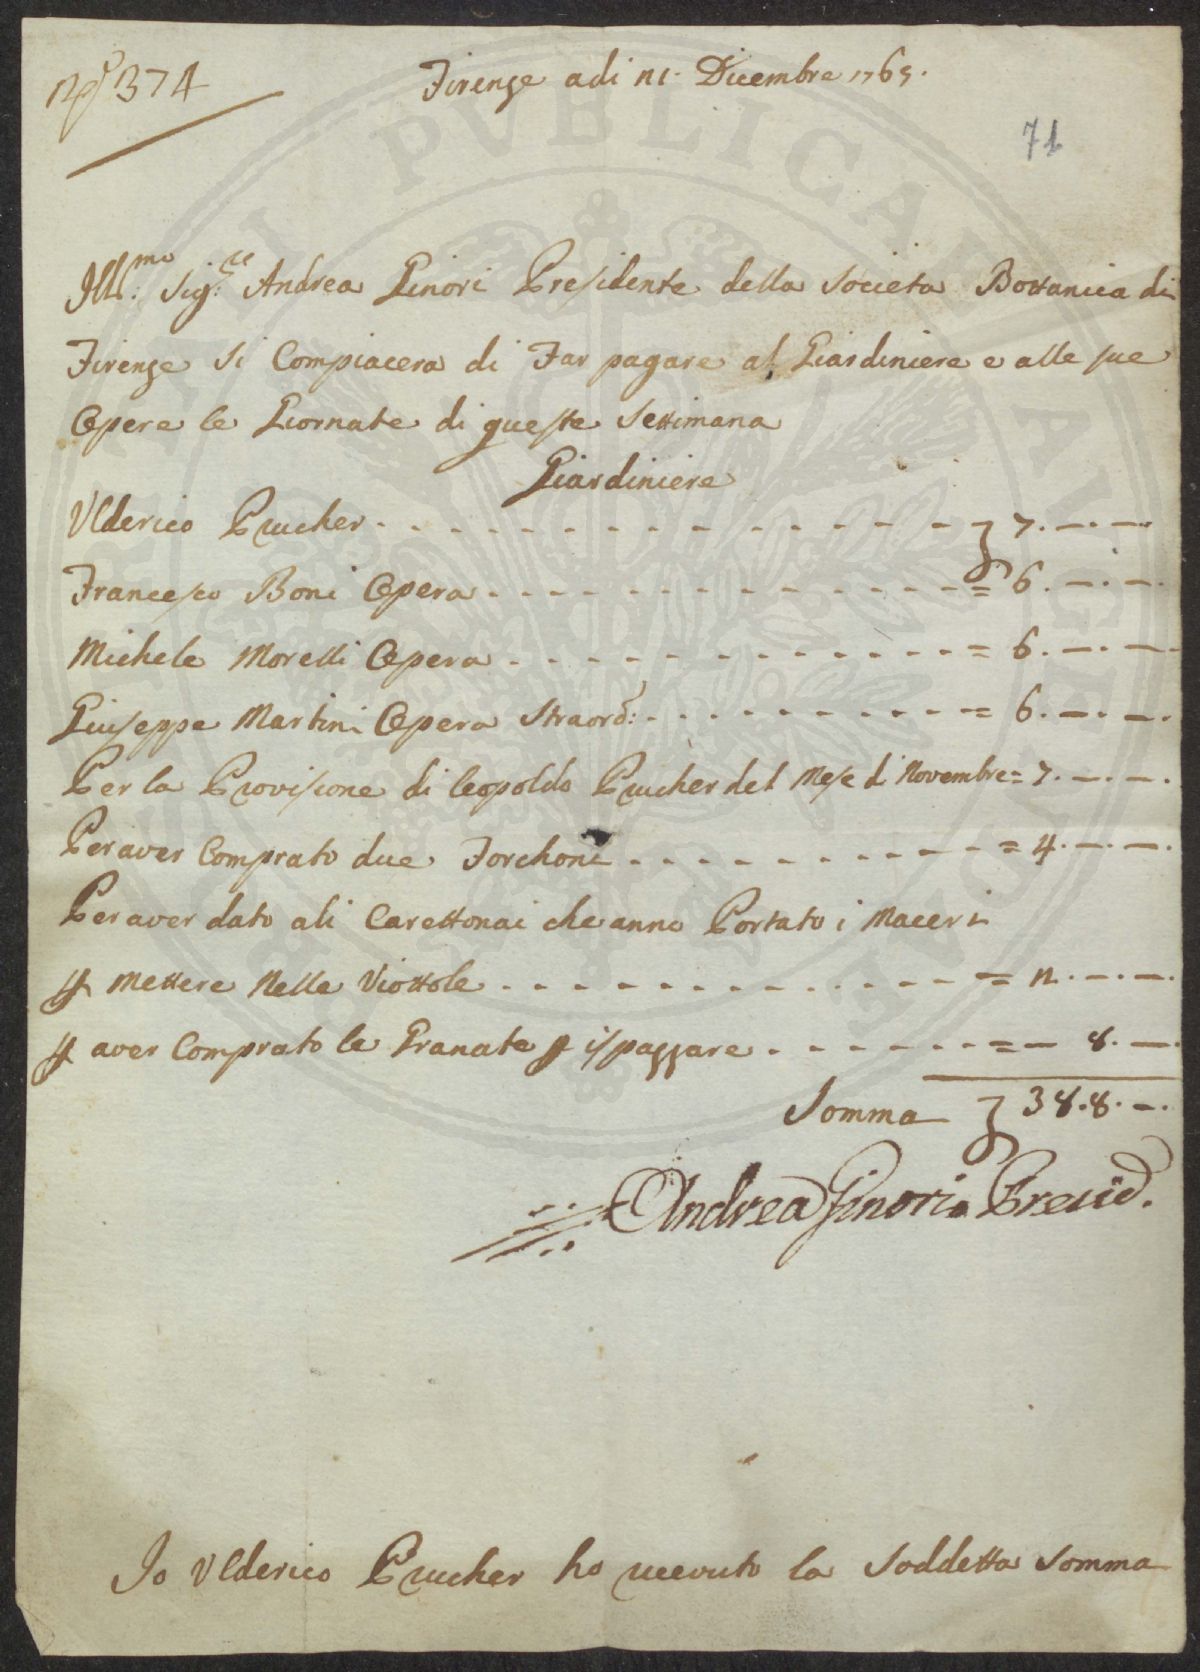 N.º 374
Firenze adi 21. Dicembre 1765.
71
Ill.mo Sig.re Andrea Ginori Presidente della Societa Bottanica di
Firenze Si Compiacera di Far pagare al Giardiniere e alle sue
Opere le Giornate di queste Settimana
Giardiniere
Ulderico Prucher - - - - - - - - - - - - - - - - 7. —. —.
Francesco Boni Opera - - - - - - - - - - - - - = 6. —. —.
Michele Morelli Opera - - - - - - - - - - - - - = 6. —. —.
Giuseppe Martini Opera Straord: - - - - - - - - - = 6. —. —.
Per la Provisione di leopoldo Prucher del Mese di Novembre = 7. —. —.
Per aver Comprato due Forchoni - - - - - - - - - - = 4. —. —.
Per aver dato ali Carettonai che anno Portato i Maceri
p mettere Nelle Viottole - - - - - - - - - - - - - = 2. —. —.
p aver Comprato le Granate p ispazzare - - - - - - = — 8. —.
Somma 38. 8. —.
Andrea Ginori Presid.
Io Ulderico Prucher ho ricevuto la Soddetta Somma